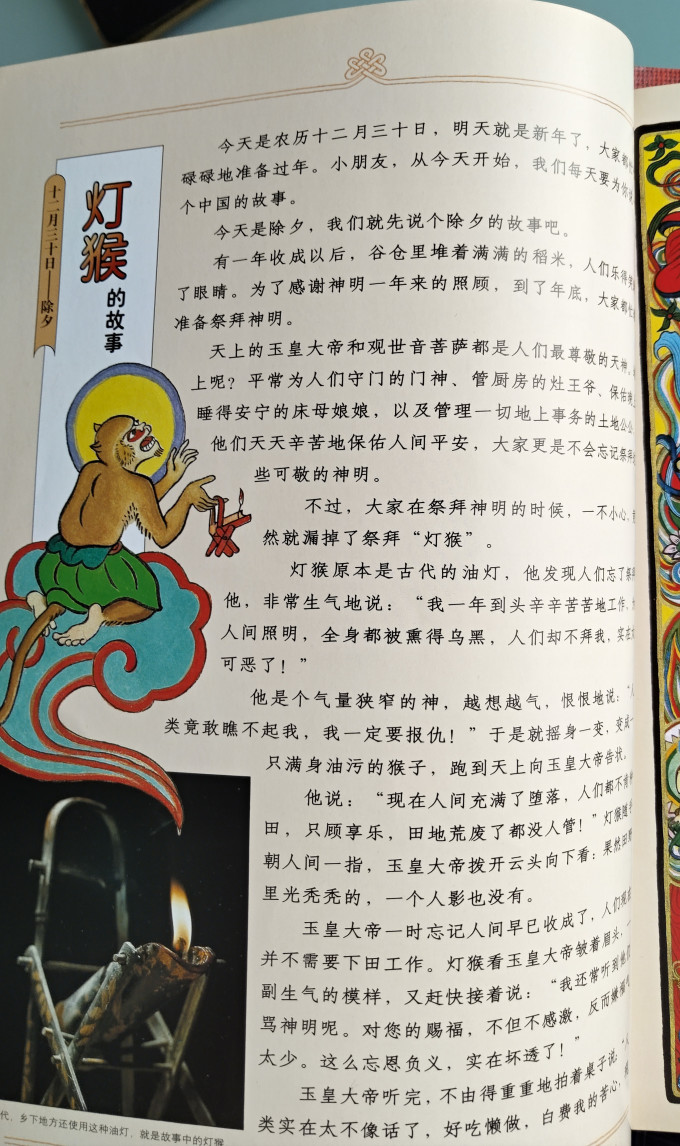 十二月三十日——除夕
灯猴
的故事
今天是农历十二月三十日，明天就是新年了，大家都忙
碌碌地准备过年。小朋友，从今天开始，我们每天要为你
个中国的故事。
今天是除夕，我们就先说个除夕的故事吧。
有一年收成以后，谷仓里堆着满满的稻米，人们乐得
了眼睛。为了感谢神明一年来的照顾，到了年底，大家都忙
准备祭拜神明。
天上的玉皇大帝和观世音菩萨都是人们最尊敬的天神。
上呢？平常为人们守门的门神、管厨房的灶王爷、保佑
睡得安宁的床母娘娘，以及管理一切地上事务的土地公公
他们天天辛苦地保佑人间平安，大家更是不会忘记祭拜
些可敬的神明。
不过，大家在祭拜神明的时候，一不小心，
然就漏掉了祭拜“灯猴”。
灯猴原本是古代的油灯，他发现人们忘了祭拜
他，非常生气地说：“我一年到头辛辛苦苦地工作，
人间照明，全身都被熏得乌黑，人们却不拜我，实在
可恶了！”
他是个气量狭窄的神，越想越气，恨恨地说：“
类竟敢瞧不起我，我一定要报仇！”于是就摇身一变，变成一
只满身油污的猴子，跑到天上向玉皇大帝告状。
他说：“现在人间充满了堕落，人们都不肯
田，只顾享乐，田地荒废了都没人管！”灯猴随手
朝人间一指，玉皇大帝拨开云头向下看：果然田
里光秃秃的，一个人影也没有。
玉皇大帝一时忘记人间早已收成了，人们现
并不需要下田工作。灯猴看玉皇大帝皱着眉头，一
副生气的模样，又赶快接着说：“我还常听到他们
骂神明呢。对您的赐福，不但不感激，反而嫌福
太少。这么忘恩负义，实在坏透了！”
玉皇大帝听完，不由得重重地拍着桌子说：“
类实在太不像话了，好吃懒做，白费我的苦心，
代，乡下地方还使用这种油灯，就是故事中的灯猴